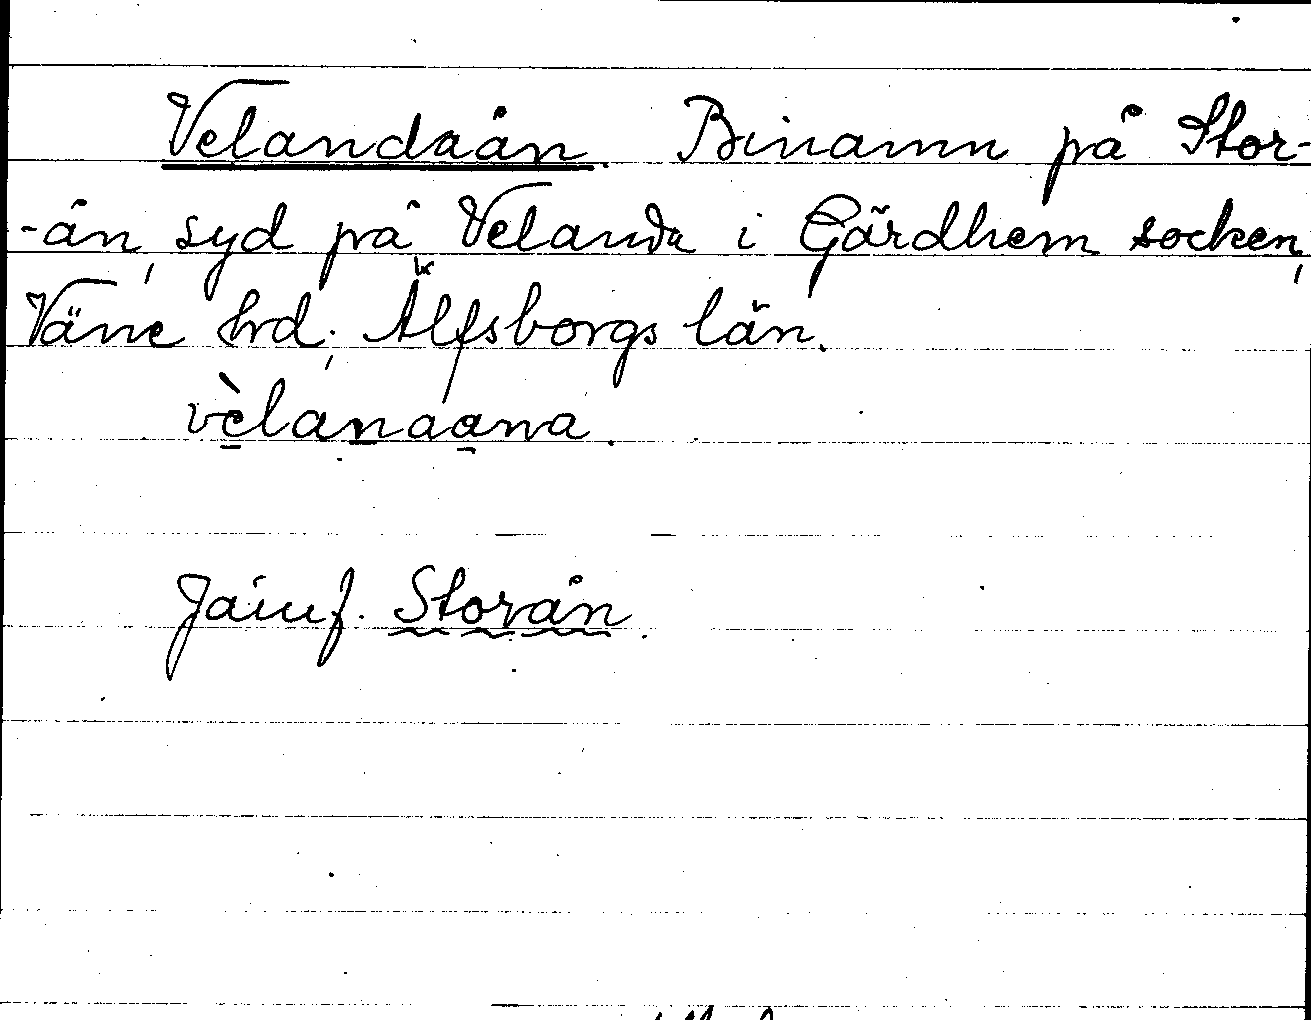 Velandaån. Binamn på Stor-
-ån, syd på Velanda i Gärdhem socken,
Väne hrd; Älfsborgs län.
vèlanaana.
Jämf. Storån.